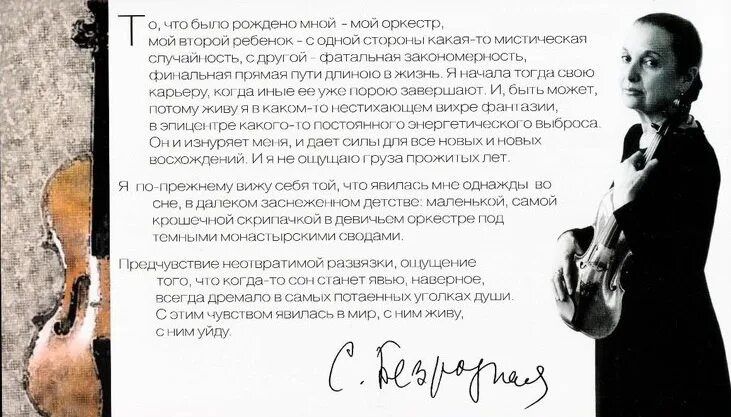 То, что было рождено мной - мой оркестр,
мой второй ребенок - с одной стороны какая-то мистическая
случайность, с другой - фатальная закономерность,
финальная прямая пути длиною в жизнь. Я начала тогда свою
карьеру, когда иные ее уже порою завершают. И, быть может,
потому живу я в каком-то нестихающем вихре фантазии,
в эпицентре какого-то постоянного энергетического выброса.
Он и изнуряет меня, и дает силы для все новых и новых
восхождений. И я не ощущаю груза прожитых лет.
Я по-прежнему вижу себя той, что явилась мне однажды во
сне, в далеком заснеженном детстве: маленькой, самой
крошечной скрипачкой в девичьем оркестре под
темными монастырскими сводами.
Предчувствие неотвратимой развязки, ощущение
того, что когда-то сон станет явью, наверное,
всегда дремало в самых потаенных уголках души.
С этим чувством явилась в мир, с ним живу,
с ним уйду.
С. Безродная